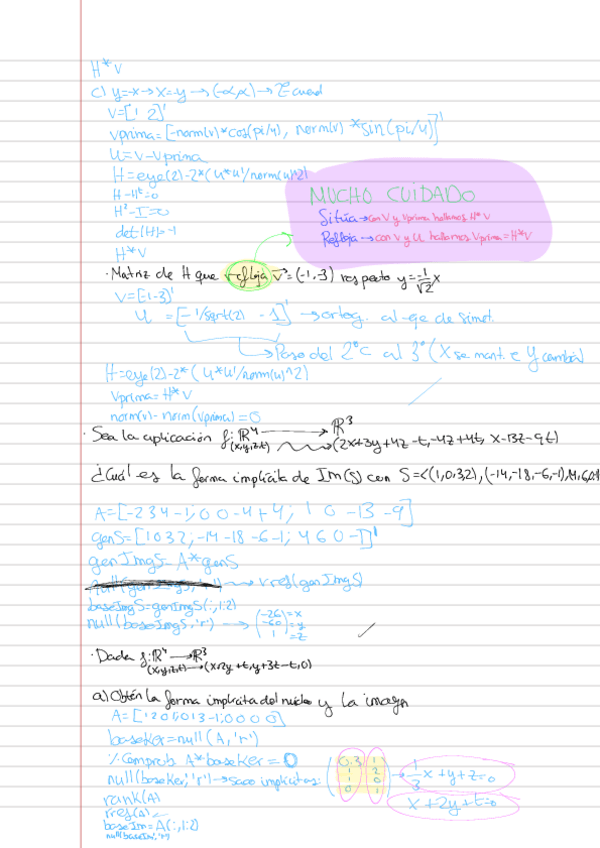 H*V
c) y=-x → x=-y → (-α,α) →
V=[1 2]'
Vprima=[norm(v)*cos(pi/4), norm(v)*sin(pi/4)]'
U=V-Vprima
H=eye(2)-2*(u*u'/norm(u)^2)
H-H'=0
H²-I=0
det(H)=-1
H*V
MUCHO CUIDADO
Sitúa → con V y Vprima hallamos H*V
Refleja → con V y U hallamos Vprima=H*V
· Matriz de H que refleja v=(-1,-3) respecto y=-1/√2 x
V=[-1-3]'
U=[-1/sqrt(2) -1]' → ortog. al eje de simet.
Paso del 2°C al 3° (X se mant. e Y cambia)
H=eye(2)-2*(u*u'/norm(u)^2)
Vprima=H*V
norm(v)-norm(Vprima)=0
· Sea la aplicación f: ℝ⁴ → ℝ³
(x,y,z,t) → (2x+3y+4z-t,-4z+4t, x-13z-9t)
¿Cuál es la forma implícita de Im(S) con S=<(1,0,3,2),(-14,-18,-6,-1),
A=[-2 3 4 -1; 0 0 -4 +4; 1 0 -13 -9]
genS=[1 0 3 2; -14 -18 -6 -1; 4 6 0 -1]'
genImgS=A*genS
null(genImgS,'r') → rref(genImgS)
baseImgS=genImgS(:,1:2)
null(baseImgS,'r') → (-26 -60 1) =x =y =z
· Dada f: ℝ⁴ → ℝ³
(x,y,z,t) → (x+2y+t, y+3t-t,0)
a) Obtén la forma implícita del núcleo y la imagen
A=[1 2 0 1; 0 1 3 -1; 0 0 0 0]
baseKer=null(A,'r')
% Comprob. A*baseKer=0
null(baseKer,'r') → saco implícitas: (0.3 1 1 2 1 0 0 1) → 1/3x+y+z=0
x+2y+t=0
rank(A)
rref(A)
baseIm=A(:,1:2)
null(baseIm,'r')